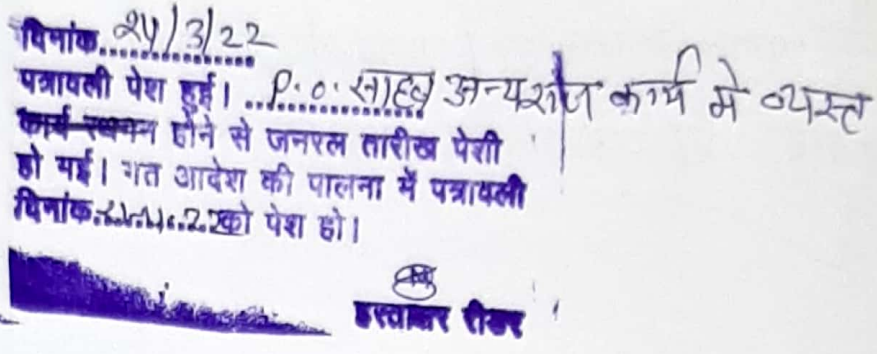 दिनांक 24/3/22
पत्रावली पेश हुई। P.O. साहब अन्य राज कार्य मे व्यस्त
कार्य स्थगन होने से जनरल तारीख पेशी
हो गई। गत आदेश की पालना में पत्रावली
दिनांक 22 को पेश हो।
हस्ताक्षर रीडर